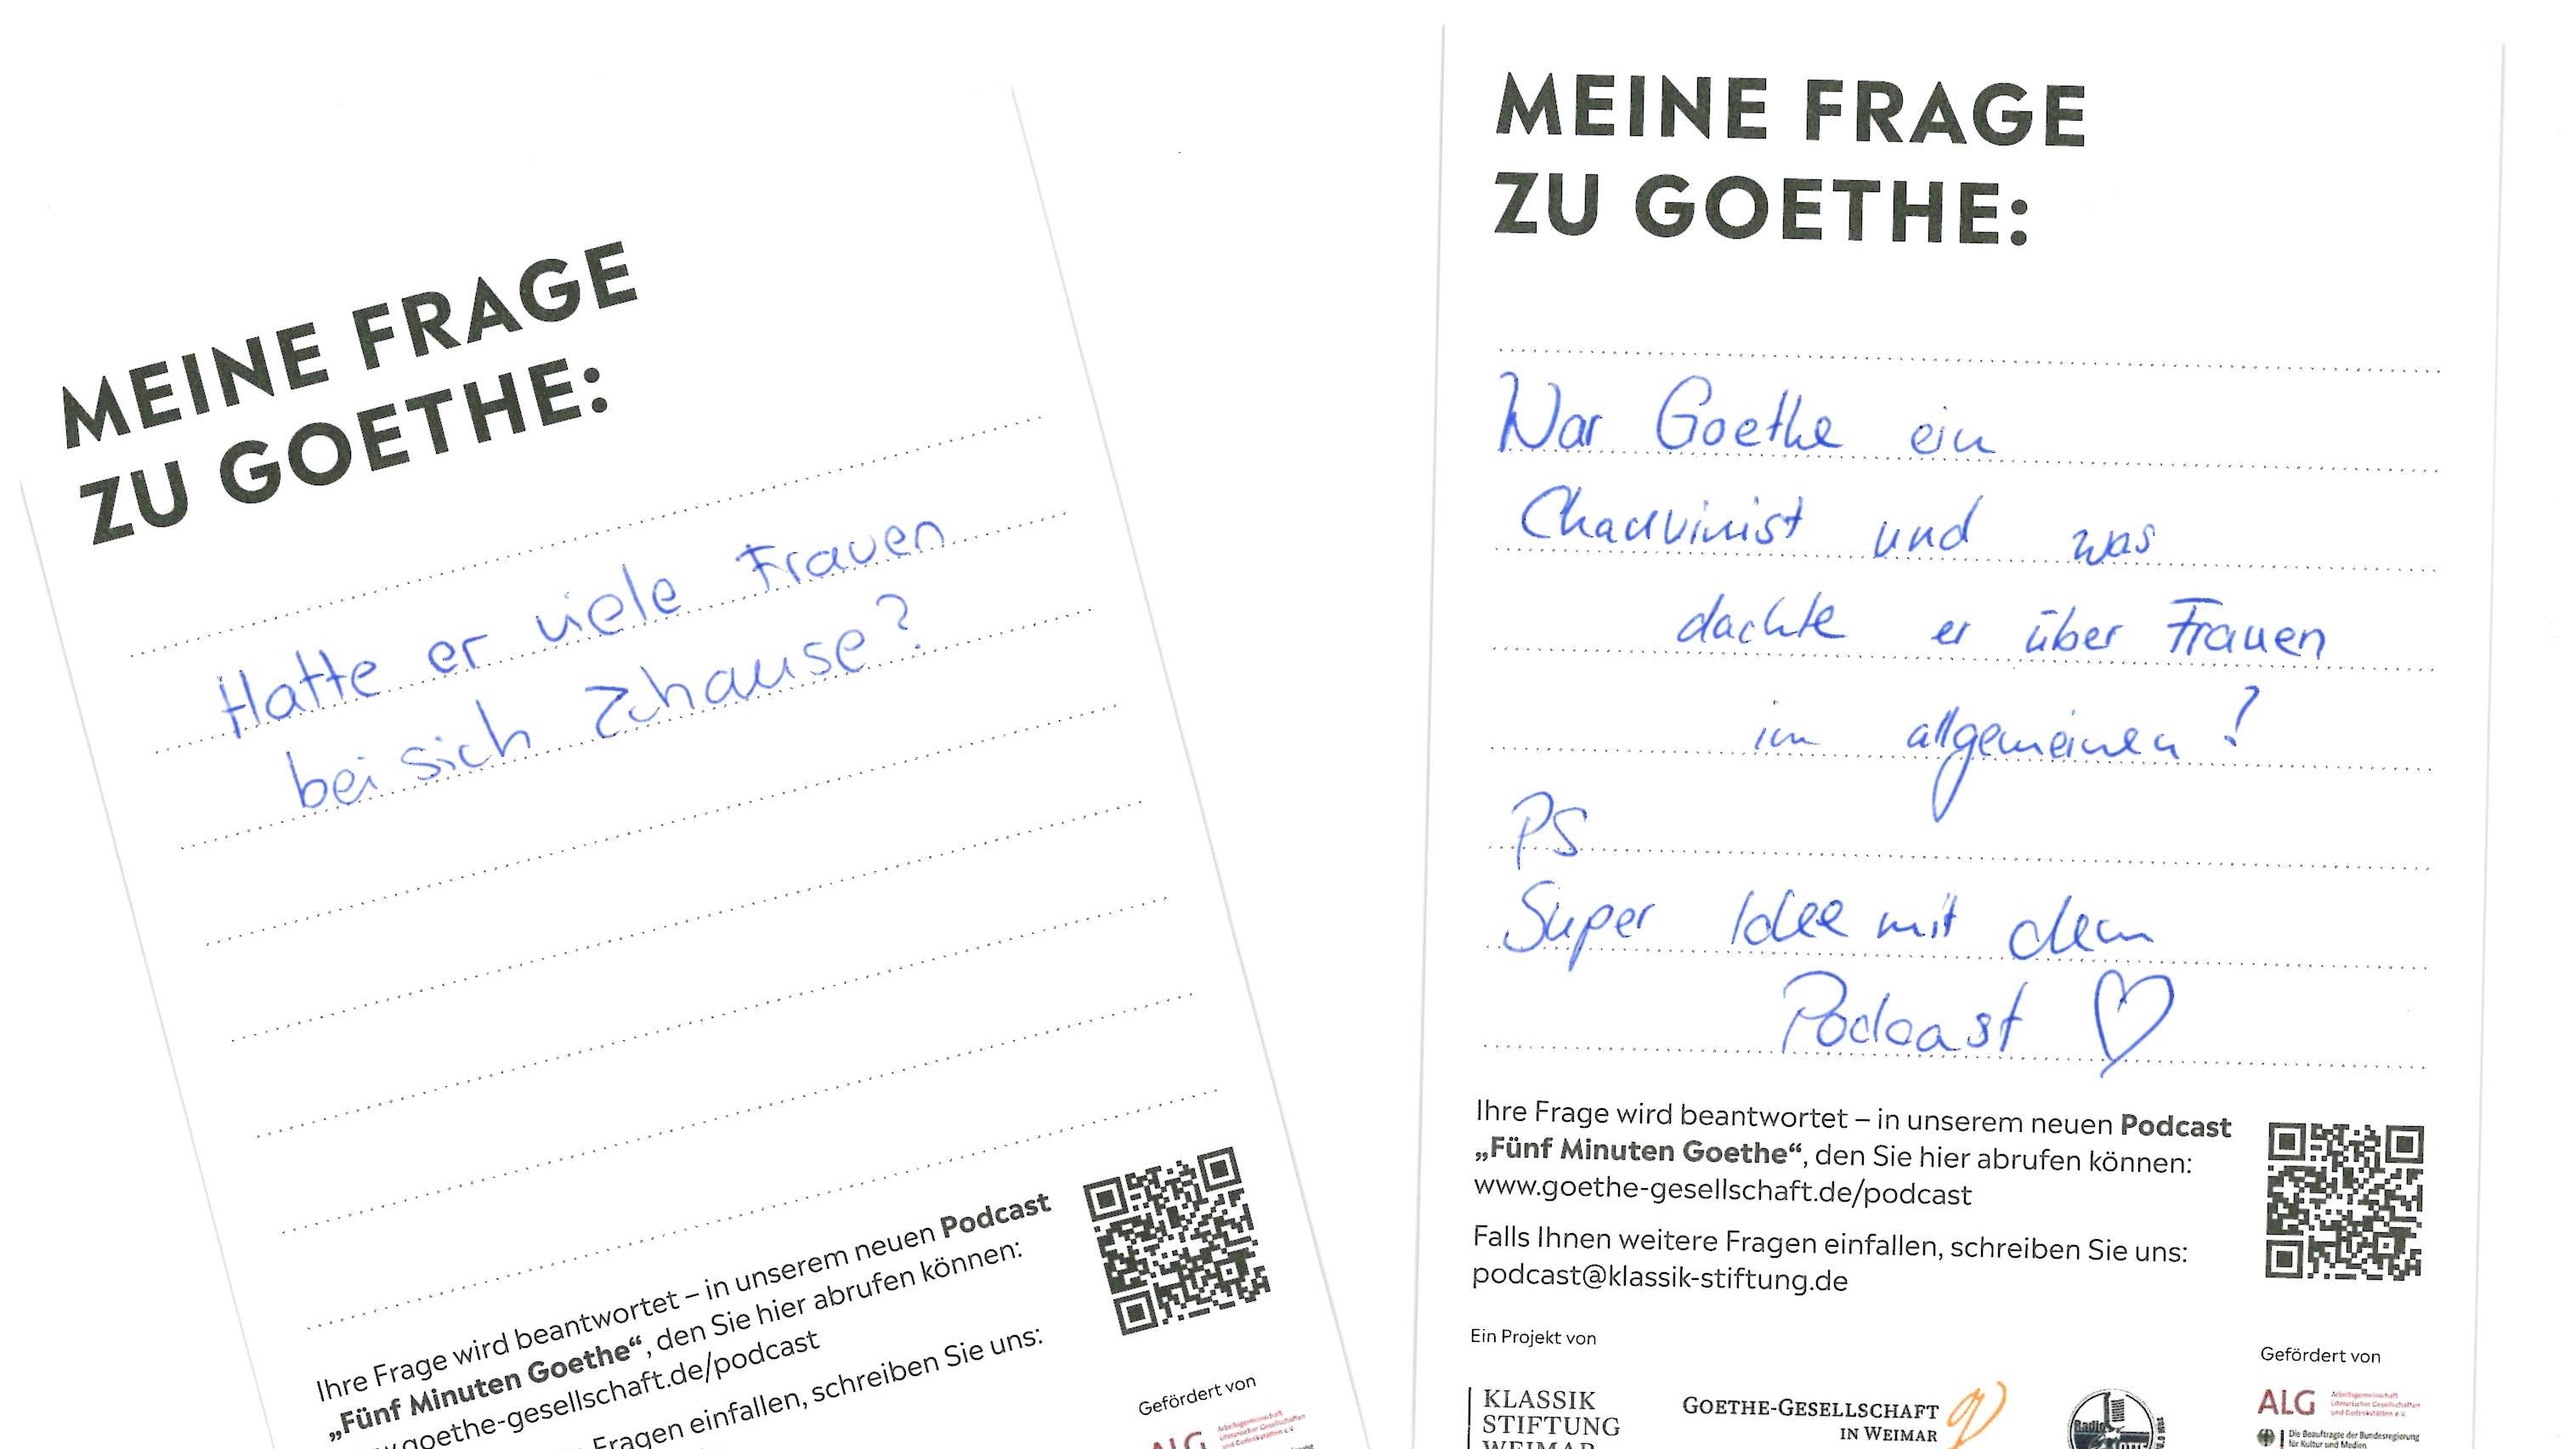 MEINE FRAGE
ZU GOETHE:
Hatte er viele Frauen
bei sich Zuhause?
Ihre Frage wird beantwortet – in unserem neuen Podcast
„Fünf Minuten Goethe“, den Sie hier abrufen können:
goethe-gesellschaft.de/podcast
Fragen einfallen, schreiben Sie uns:
Gefördert von
ALG Arbeitsgemeinschaft
Literarischer Gesellschaften
und Gedenkstätten e.V.
MEINE FRAGE
ZU GOETHE:
War Goethe ein
Chauvinist und was
dachte er über Frauen
im allgemeinen?
PS
Super Idee mit dem
Podcast ♡
Ihre Frage wird beantwortet – in unserem neuen Podcast
„Fünf Minuten Goethe“, den Sie hier abrufen können:
www.goethe-gesellschaft.de/podcast
Falls Ihnen weitere Fragen einfallen, schreiben Sie uns:
podcast@klassik-stiftung.de
Ein Projekt von
Gefördert von
KLASSIK
STIFTUNG
WEIMAR
GOETHE-GESELLSCHAFT
IN WEIMAR
Radio
ALG Arbeitsgemeinschaft
Literarischer Gesellschaften
und Gedenkstätten e.V.
Die Beauftragte der Bundesregierung
für Kultur und Medien